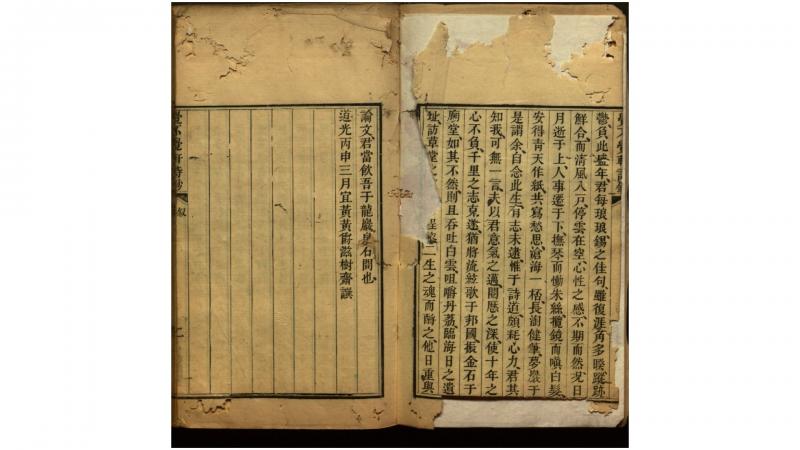 鬱負此盛年君每琅琅錫之佳句雖復涯角多暌蹤跡
鮮合而清風入戸停雲在空心性之感不期而然況日
月逝于上人事遷于下撫琴而慟朱絲攬鏡而嗔白髮
安得青天作紙共寫愁思滄海一桮長澍健筆夢嚴于
是謂余自念此生有志未遂惟于詩道頗耗心力君其
知我可無一言夫以君意氣之邁閱歷之深使十年之
心不負千里之志克遂猶將流絃歌于邦國振金石于
廟堂如其不然則且吞吐白雲咀嚼丹荔臨海日之遺
址訪草堂之 二生之魂而酹之他日重與
論文君當飲吾于龍巖泉石間也
道光丙申三月宜黃黃爵滋樹齋譔
覺不覺軒詩鈔 叙